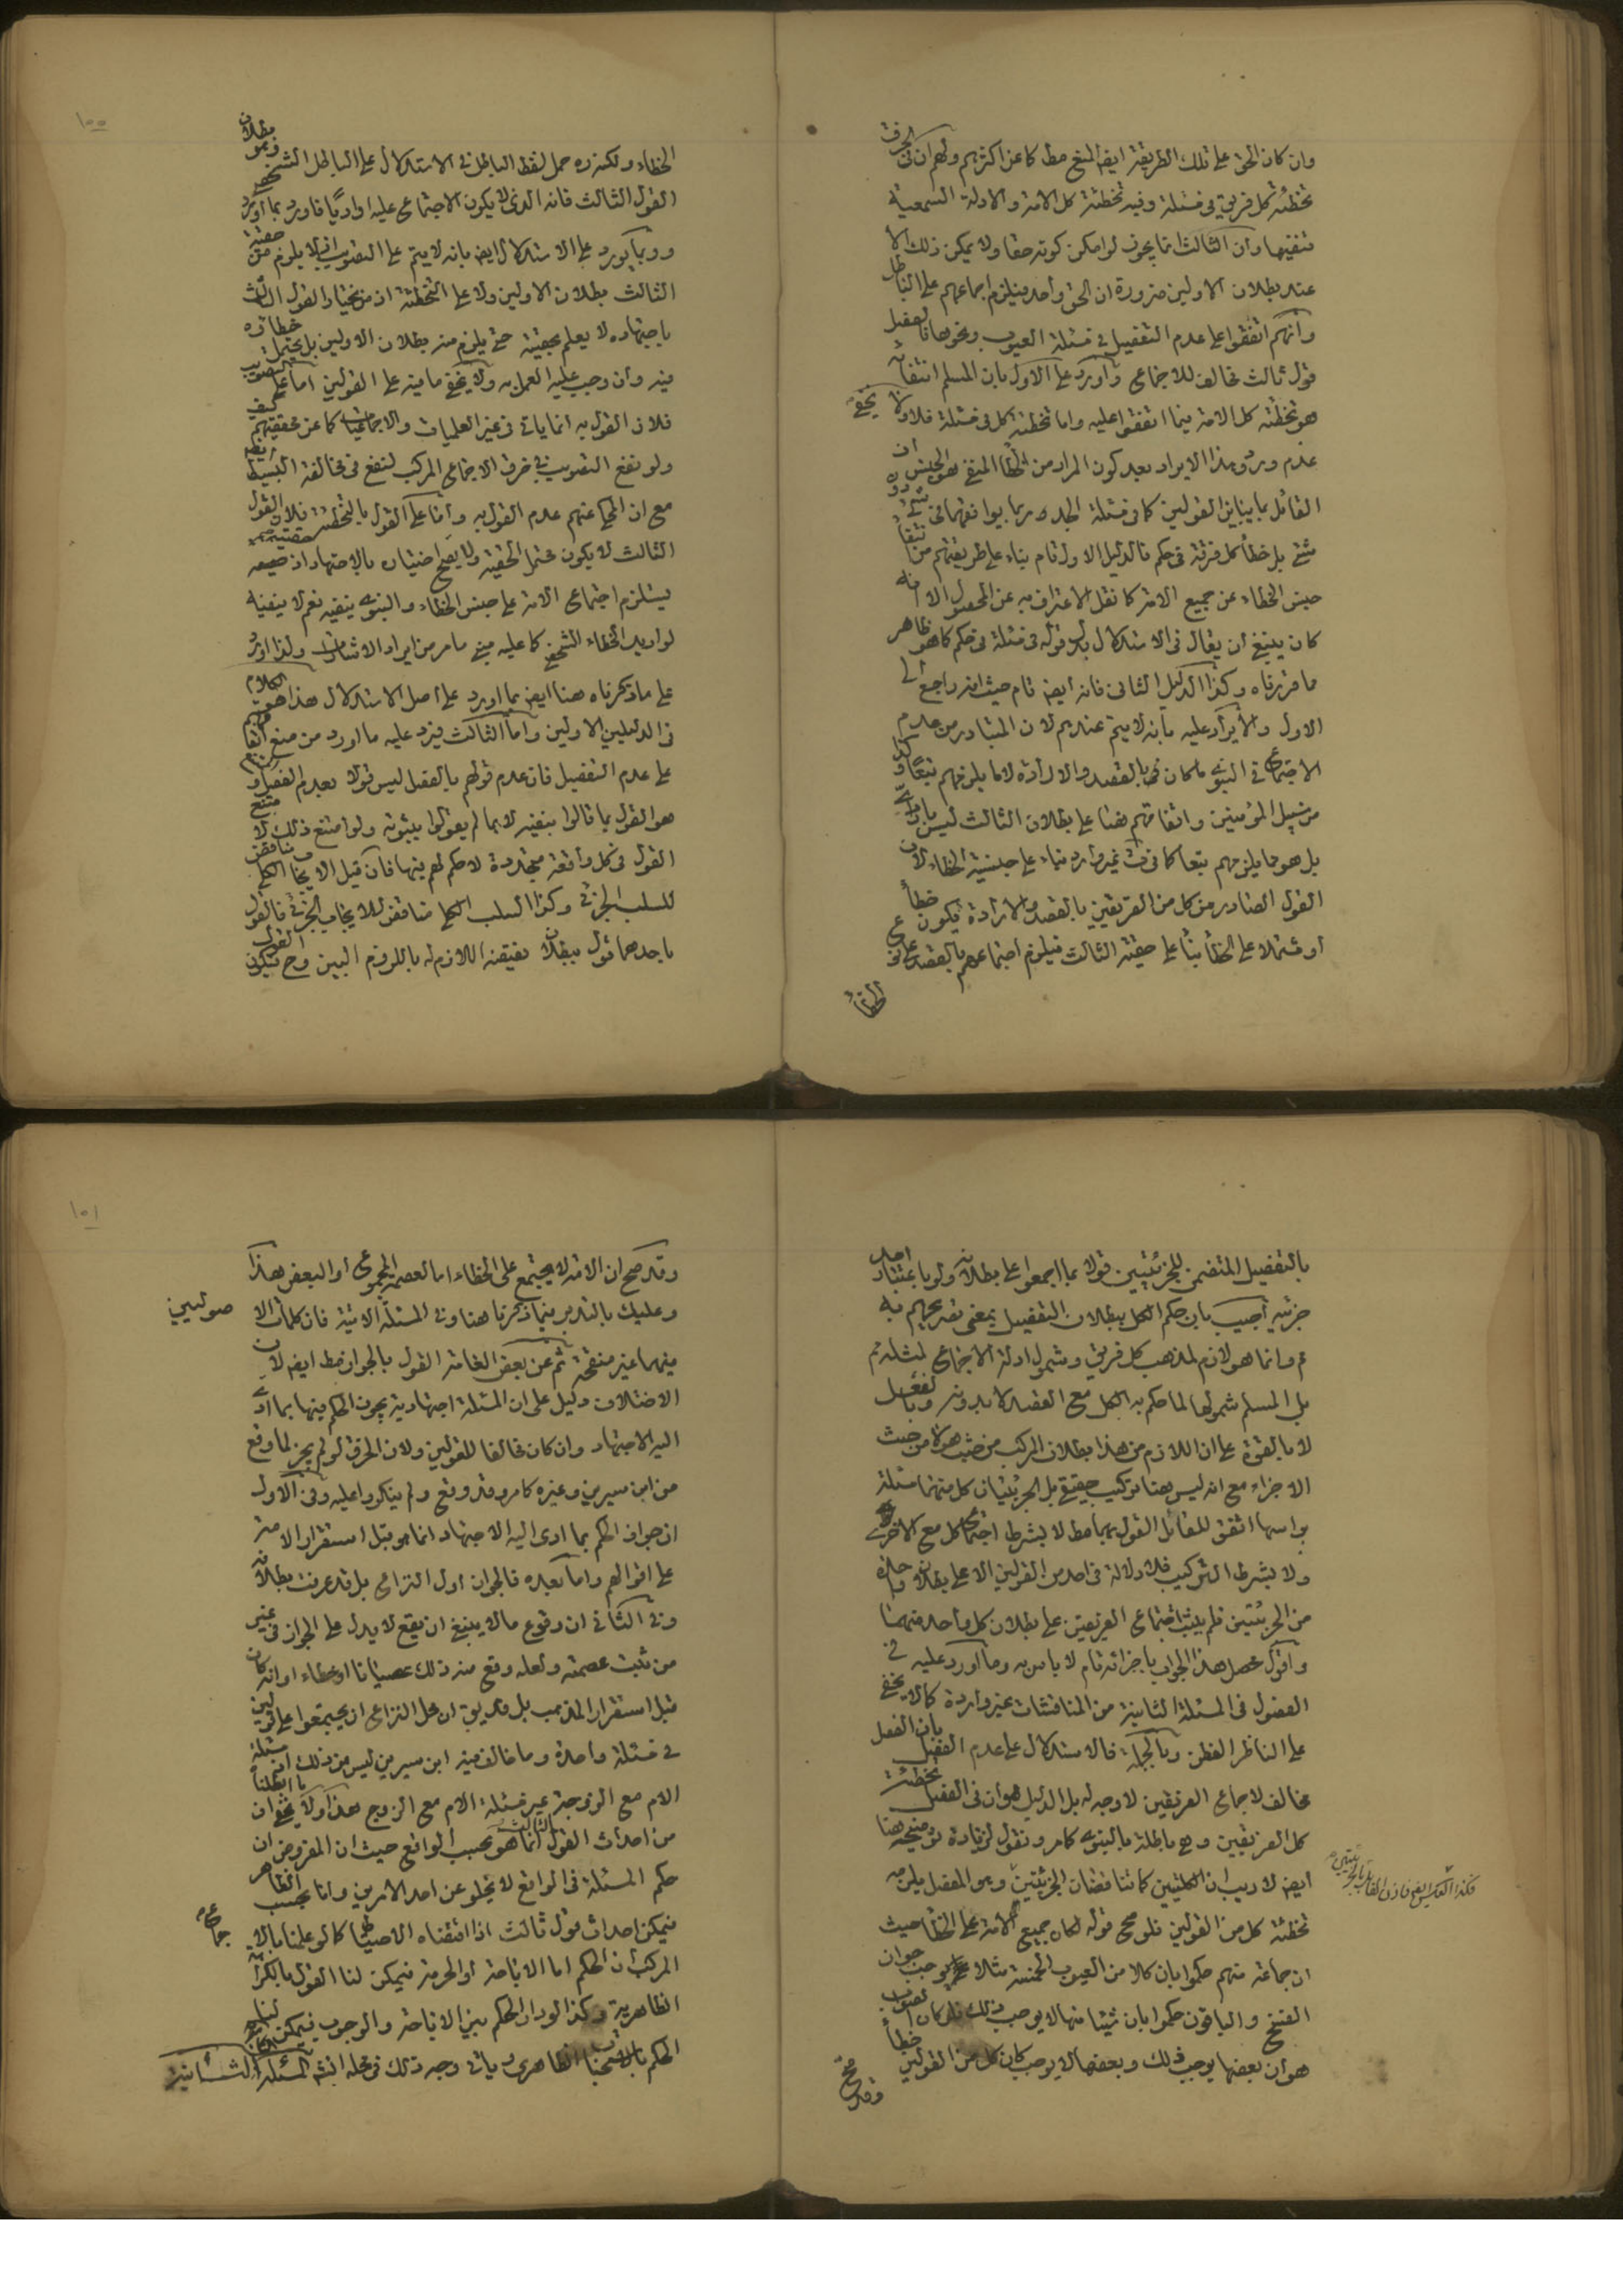 وان كان الحق على تلك الطريقة ايضا المنع مطلقا كما عن اكثرهم ولهم ان في الخرق
تخطئة كل فريق في مسئلة وفيه تخطئة كل الامة والادلة السمعية
تنفيها وان الثالث انما يجوز لو امكن كونه حقا ولا يمكن ذلك الا
عند بطلان الاولين ضرورة ان الحق واحد فيلزم اجماعهم على الباطل
وانهم اتفقوا على عدم التفصيل في مسئلة العيوب ونحوها فالمفصل
قول ثالث مخالف للاجماع واورد على الاول بان المسلم انتفائه
هو تخطئة كل الامة فيما اتفقوا عليه واما تخطئة كل في مسئلة فلا ولا يخفى
عدم ورود هذا الايراد بعد كون المراد من الخطأ المنفي هو الجنس
القائل بما ينافي القولين كما في مسئلة الجد
بل خطأ كل فرقة في حكم فالدليل الاول تام بناء على طريقتهم من
جنس الخطاء عن جميع الامة كما نقل الاعتراف به عن المحصول الا انه
كان ينبغي ان يقال في الاستدلال بدل قوله في مسئلة في حكم كما هو ظاهر
ما قررناه وكذا الدليل الثاني فانه ايضا تام حيث انه راجع الى
الاول والايراد عليه بانه لا يتم عندهم لان المتبادر من عدم
الاجتماع في النبوي ما كان بالقصد والارادة لا ما يلزمهم تبعا وكذا
سبيل المؤمنين واتفاقهم هنا على بطلان الثالث ليس بارادي
بل هو مما يلزمهم تبعا كما ترى غير وارد بناء على جنسية الخطاء لان
القول الصادر من كل من الفريقين بالقصد والارادة يكون خطأ
او مشتملا على الخطأ بناء على حقية الثالث فيلزم اجتماعهم بالقصد على
الخطأ
١٠٠
الخطاء ولكنه ره حمل لفظ الباطل في الاستدلال على الباطل الشخصي وهو بطلان
القول الثالث فانه الذي لا يكون الاجتماع عليه اراديا فاورد بما اورد
وربما يورد على الاستدلال ايضا بانه لا يتم على التصويب اذ لا يلزم من حقية
الثالث بطلان الاولين ولا على التخطئة اذ من يختار القول الثالث
باجتهاده لا يعلم بحقيته حتى يلزم منه بطلان الاولين بل يحتمل خطائه
فيه وان وجب عليه العمل به ولا يخفى ما فيه على القولين اما على التصويب
فلان القول به انما ياتي في غير العلميات والاجماعيات كما عن محققيهم كيف
ولو نفع التصويب في خرق الاجماع المركب لنفع في مخالفة البسيط ايضا
مع ان المحكي عنهم عدم القول به واما على القول بالتخطئة فلان القول
الثالث لا يكون محتمل الحقية ولا يصح اختياره بالاجتهاد اذ حقيته
يستلزم اجتماع الامة على جنس الخطاء والنبوي ينفيه نعم لا ينفيه
لو اريد الخطاء الشخصي كما عليه مبنى ما مر من ايراد الاشارات ولذا اورد
على ما ذكرناه هنا ايضا بما اورد على اصل الاستدلال هذا هو الكلام
في الدليلين الاولين واما الثالث فيرد عليه ما اورد من منع اتفاقهم
على عدم التفصيل فان عدم قولهم بالفصل ليس قولا بعدم الفصل و
هو القول بما قالوا بنفيه لا بما لم يقولوا بثبوته ولو امتنع ذلك لا متنع
القول في كل واقعة متجددة لا حكم لهم فيها فان قيل الايجاب الكلي مناقض
للسلب الجزئي وكذا السلب الكلي مناقض للايجاب الجزئي فالقول
باحدهما قول ببطلان نقيضه اللازم له باللزوم البين وح فيكون القول
بالتفصيل المتضمن للجزئيتين قولا بما اجمعوا على بطلانه ولو باعتبار احد
جزئيه اجيب بان حكم الكل ببطلان التفصيل بمعنى تصريحهم به
م وانما هو لازم لمذهب كل فريق وشمول ادلة الاجماع لمثله م
بل المسلم شمولها لما حكم به الكل مع القصد لا بدونه وبالفعل
لا بالقوة على ان اللازم من هذا بطلان المركب من حيث هو لا من حيث
الاجزاء مع انه ليس هنا تركيب حقيقي بل الجزئيتان كل منهما مسئلة
براسها اتفق للقائل القول بهما معا لا بشرط اجتماع كل مع الاخرى
ولا بشرط التركيب فلا دلالة في احد من القولين الا على بطلان واحدة
من الجزئيتين فلم يثبت اجتماع الفريقين على بطلان كل واحدة منهما
واقول محصل هذا الجواب باجزائه تام لا باس به وما اورد عليه في
الفصول في المسئلة الثانية من المناقشات غير واردة كما لا يخفى
على الناظر الفطن وبالجملة فالاستدلال على عدم الفصل بان الفصل
مخالف لاجماع الفريقين لا وجه له بل الدليل هو ان في الفصل تخطئة
كل الفريقين وهي باطلة بالنبوي كما مر ونقول لزيادة توضيحه هنا
ايضا لا ريب ان الكليتين كما تناقضان الجزئيتين وهو المفصل يلزمه
فكذا العكس
تخطئة كل من القولين فلو صح قوله لكان جميع الامة على الخطأ حيث
ان جماعة منهم حكموا بان كلا من العيوب الخمسة مثلا يوجب جواز
الفسخ والباقون حكموا بان شيئا منها لا يوجب ذلك فلو كان الصواب
هو ان بعضها يوجب ذلك وبعضها لا يوجب كان كل من القولين خطأ
وقد صح
١٠١
وقد صح ان الامة لا يجتمع على الخطاء اما لعصمة المجموع او البعض هذا
وعليك بالتدبر فيما ذكرنا هنا وفي المسئلة الاتية فان كلمات الاصوليين
فيهما غير منقحة ثم عن بعض العامة القول بالجواز مطلقا ايضا لان
الاختلاف دليل على ان المسئلة اجتهادية يجوز الحكم فيها بما ادى
اليه الاجتهاد وان كان مخالفا للقولين ولان الخرق لو لم يجز لما وقع
من ابن سيرين وغيره كما مر وقد وقع ولم ينكروا عليه وفي الاول
ان جواز الحكم بما ادى اليه الاجتهاد انما هو قبل استقرار الامة
على اقوالهم واما بعده فالجواز اول النزاع بل قد عرفت بطلانه
وفي الثاني ان وقوع ما لا ينبغي ان يقع لا يدل على الجواز في غير
من ثبت عصمته ولعله وقع منه ذلك عصيانا او خطاء او انه كان
قبل استقرار المذهب بل قد يق ان محل النزاع ان يجتمعوا على قولين
في مسئلة واحدة وما خالف فيه ابن سيرين ليس من ذلك اذ مسئلة
الام مع الزوجة غير مسئلة الام مع الزوج هذا ولا يخفى ان ما ابطلناه
من احداث القول الثالث انما هو بحسب الواقع حيث ان المفروض ان
حكم المسئلة في الواقع لا يخلو عن احد الامرين واما بحسب الظاهر
فيمكن احداث قول ثالث اذا اقتضاه الاحتياط كما لو علمنا بالاجماع
المركب ان الحكم اما الاباحة او الحرمة فيمكن لنا القول بالكراهة
الظاهرية وكذا لو دار الحكم بين الاباحة والوجوب فيمكن لنا
الحكم بالاستحباب الظاهري وياتي وجه ذلك في محله انش المسئلة الثانية